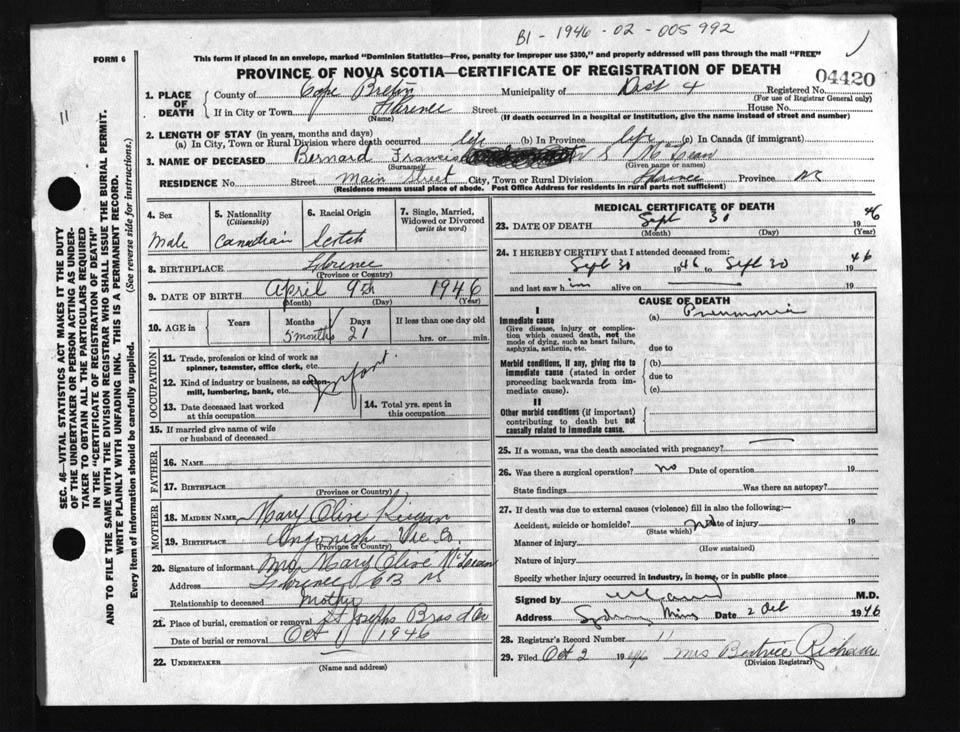 B1 - 1946 - 02 - 005992
FORM 6
This form if placed in an envelope, marked "Dominion Statistics—Free, penalty for improper use $300," and properly addressed will pass through the mail "FREE"
PROVINCE OF NOVA SCOTIA—CERTIFICATE OF REGISTRATION OF DEATH
04420
1. PLACE OF DEATH
County of Cape Breton Municipality of Dist 4 Registered No.
(For use of Registrar General only)
If in City or Town Florence Street House No.
(Name) (If death occurred in a hospital or institution, give the name instead of street and number)
2. LENGTH OF STAY (in years, months and days)
(a) In City, Town or Rural Division where death occurred life (b) In Province life (c) In Canada (if immigrant)
3. NAME OF DECEASED Bernard Francis McLean
(Surname) (Given name or names)
RESIDENCE No. Street Main Street City, Town or Rural Division Florence Province NS
(Residence means usual place of abode. Post Office Address for residents in rural parts not sufficient)
4. Sex
Male
5. Nationality
(Citizenship)
Canadian
6. Racial Origin
Scotch
7. Single, Married, Widowed or Divorced
(write the word)
8. BIRTHPLACE Florence
(Province or Country)
9. DATE OF BIRTH April 9th 1946
(Month) (Day) (Year)
10. AGE in Years Months Days If less than one day old
5 months 21 hrs. or min.
OCCUPATION
11. Trade, profession or kind of work as spinner, teamster, office clerk, etc.
12. Kind of industry or business, as cotton mill, lumbering, bank, etc.
Infant
13. Date deceased last worked at this occupation
14. Total yrs. spent in this occupation
15. If married give name of wife or husband of deceased
FATHER
16. NAME
17. BIRTHPLACE
(Province or Country)
MOTHER
18. MAIDEN NAME Mary Olive
19. BIRTHPLACE Ingonish Vic Co.
(Province or Country)
20. Signature of informant Mrs Mary Olive McLean
Address Florence CB NS
Relationship to deceased Mother
21. Place of burial, cremation or removal St Josephs Bras d'Or
Date of burial or removal Oct 1 1946
22. UNDERTAKER
(Name and address)
MEDICAL CERTIFICATE OF DEATH
23. DATE OF DEATH Sept 30 1946
(Month) (Day) (Year)
24. I HEREBY CERTIFY that I attended deceased from:
Sept 30 1946 to Sept 30 1946
and last saw him alive on 19
CAUSE OF DEATH
I
Immediate cause (a) Pneumonia
Give disease, injury or complication which caused death, not the mode of dying, such as heart failure, asphyxia, asthenia, etc.
due to
Morbid conditions, if any, giving rise to immediate cause (stated in order proceeding backwards from immediate cause).
(b)
due to
(c)
II
Other morbid conditions (if important) contributing to death but not causally related to immediate cause.
25. If a woman, was the death associated with pregnancy?
26. Was there a surgical operation? no Date of operation 19
State findings Was there an autopsy?
27. If death was due to external causes (violence) fill in also the following:—
Accident, suicide or homicide? no Date of injury 19
(State which)
Manner of injury
(How sustained)
Nature of injury
Specify whether injury occurred in industry, in home, or in public place
Signed by M.D.
Address Sydney Mines Date 2 Oct 1946
28. Registrar's Record Number 11
29. Filed Oct 2 1946 Mrs Beatrice
(Division Registrar)
11
SEC. 46—VITAL STATISTICS ACT MAKES IT THE DUTY
OF THE UNDERTAKER OR PERSON ACTING AS UNDER-
TAKER TO OBTAIN ALL THE PARTICULARS REQUIRED
IN THE "CERTIFICATE OF REGISTRATION OF DEATH"
AND TO FILE THE SAME WITH THE DIVISION REGISTRAR WHO SHALL ISSUE THE BURIAL PERMIT.
WRITE PLAINLY WITH UNFADING INK. THIS IS A PERMANENT RECORD.
Every item of information should be carefully supplied. (See reverse side for instructions.)